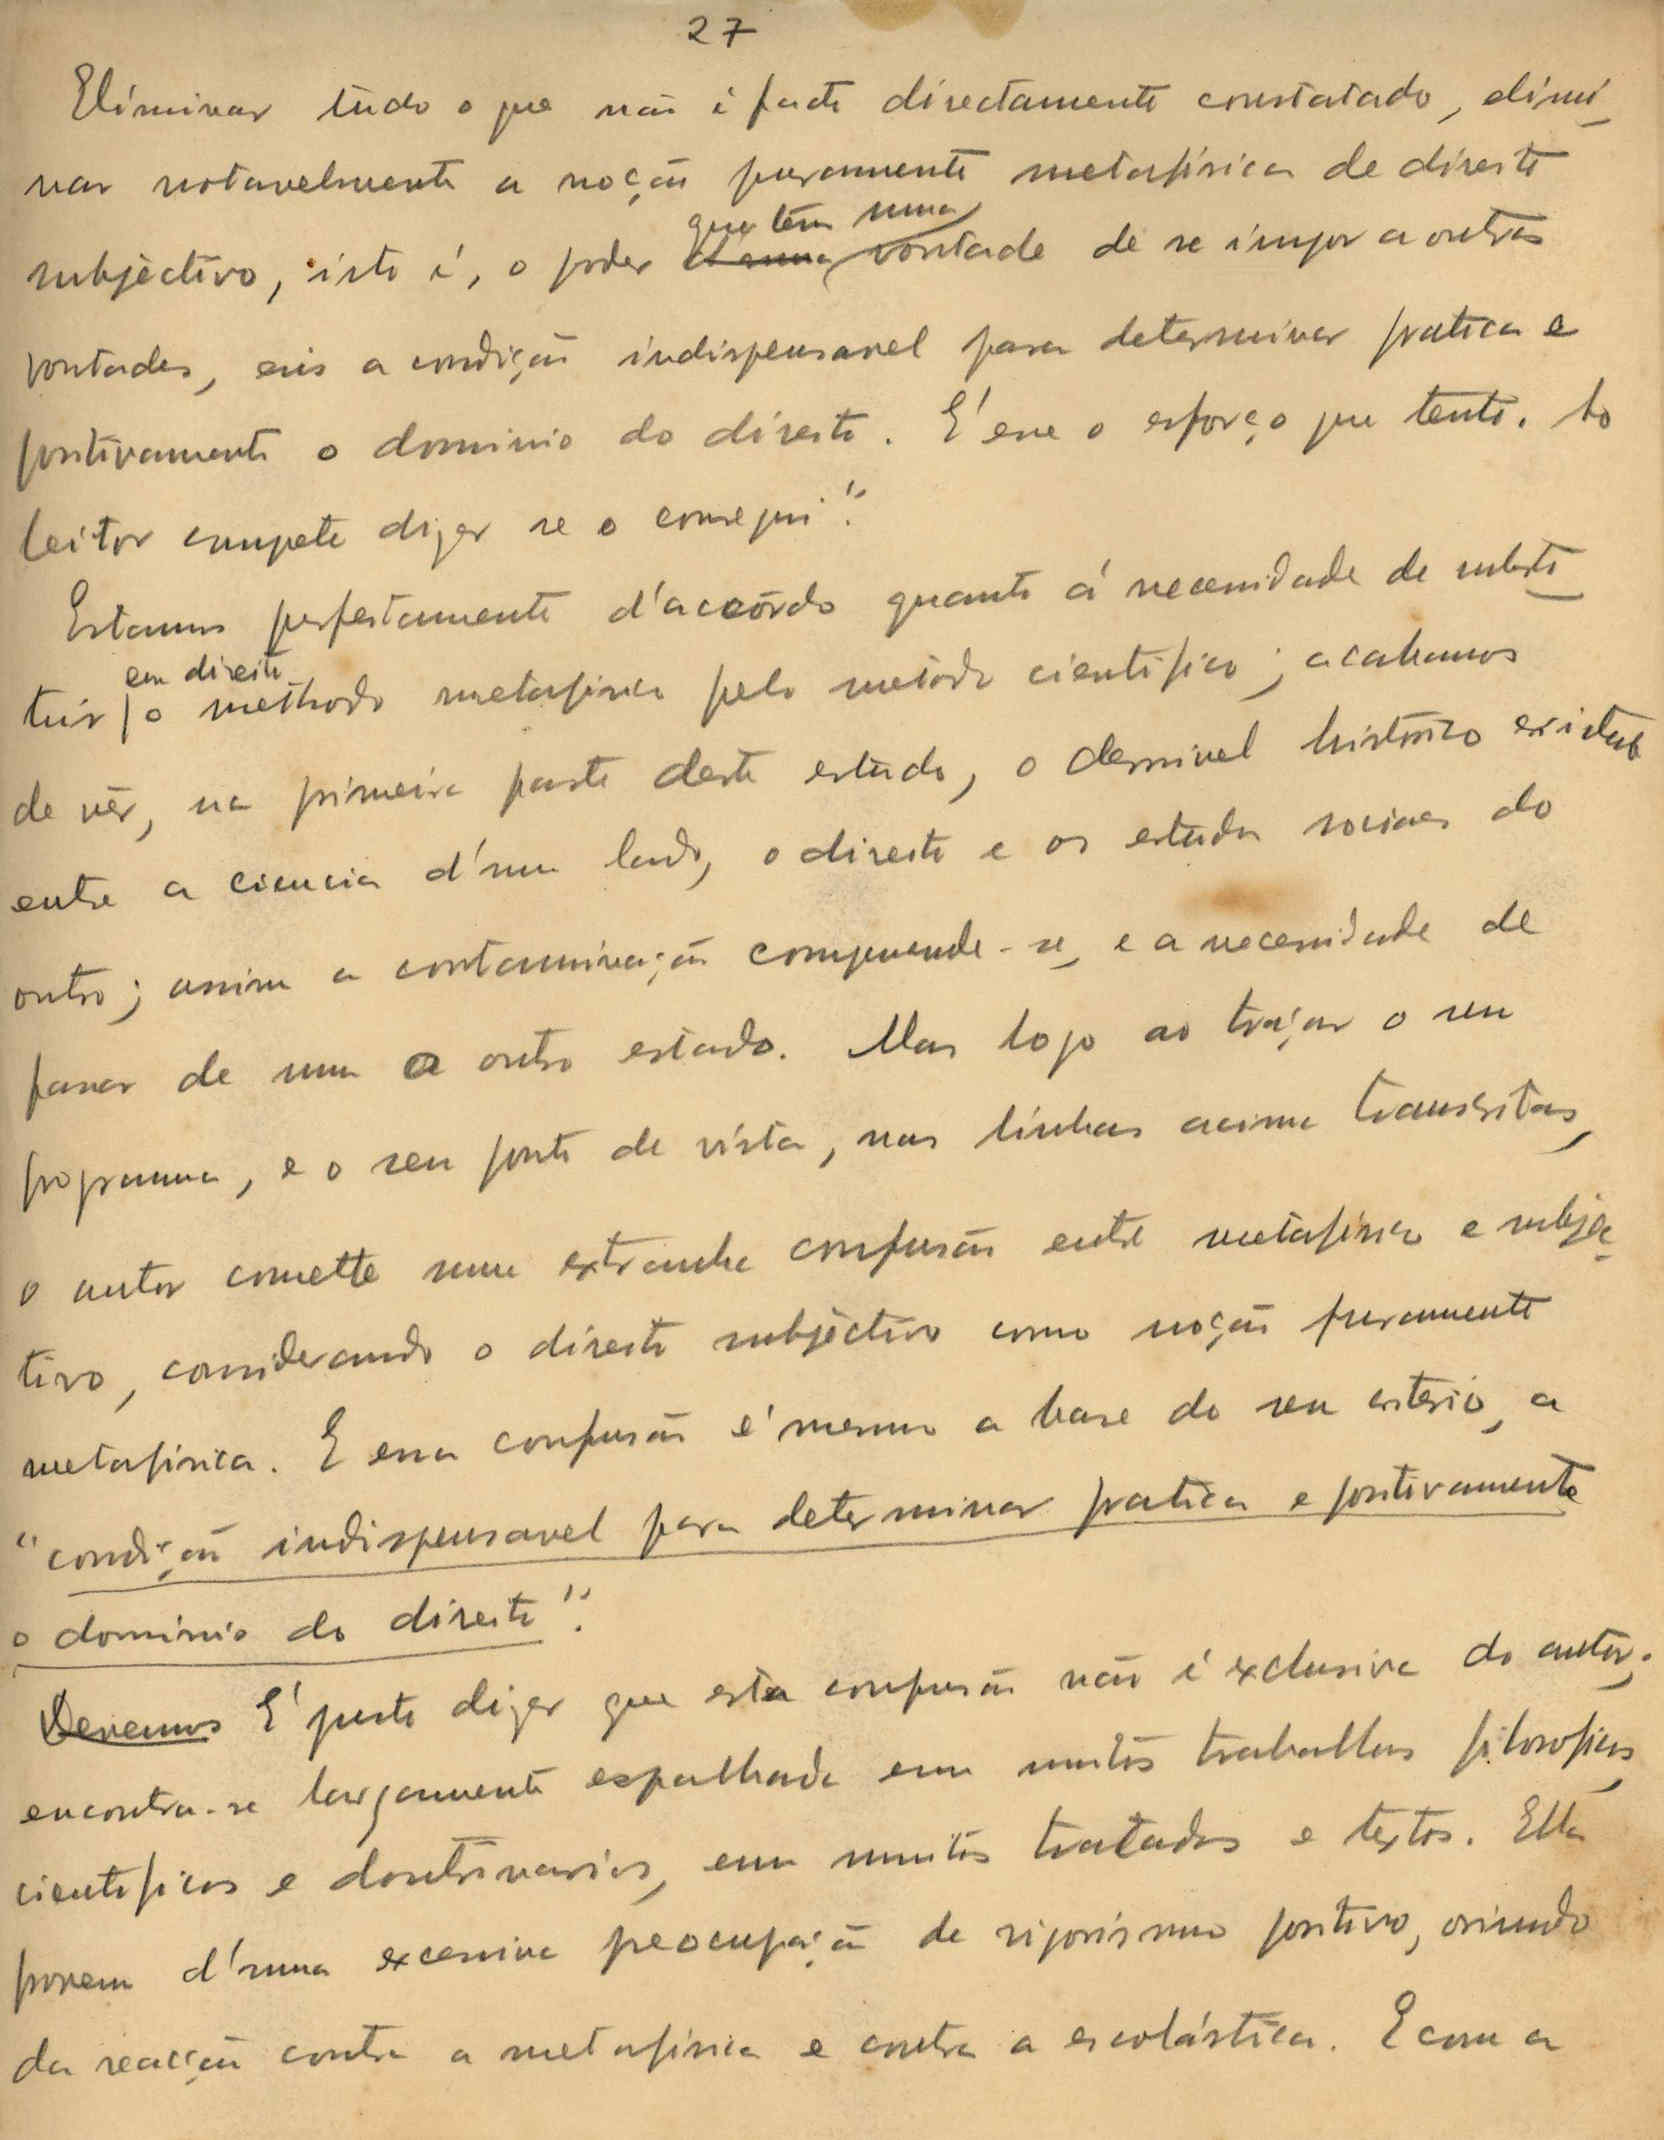 27
Eliminar tudo o que não é facto directamente constatado, elimi
nar notavelmente a noção puramente metafisica de direito
que tem uma
subjectivo, isto é, o poder vontade de se impor a outras
vontades, eis a condição indispensavel para determinar pratica e
positivamente o dominio do direito. E' esse o esforço que tento. Ao
leitor compete dizer se o consegui".
Estamos perfeitamente d'accôrdo quanto á necessidade de substi
em direito
tuir o methodo metafisico pelo metodo cientifico; acabamos
de vêr, na primeira parte deste estudo, o desnivel histórico existente
entre a ciencia d'um lado, o direito e os estudos sociaes do
outro; assim a contaminação comprehende-se, e a necessidade de
passar de um a outro estado. Mas logo ao traçar o seu
programma, e o seu ponto de vista, nas linhas acima transcritas,
o autor comette uma extranha confusão entre metafisico e subjec
tivo, considerando o direito subjectivo como noção puramente
metafisica. E essa confusão é mesmo a base do seu criterio, a
"condição indispensavel para determinar pratica e positivamente
o dominio do direito".
Devemos E' justo dizer que esta confusão não é exclusiva do autor;
encontra-se largamente espalhada em muitos trabalhos filosoficos,
cientificos e doutrinarios, em muitos tratados e textos. Ella
provem d'uma excessiva preocupação de rigorismo positivo, oriundo
da reacção contra a metafisica e contra a escolástica. E com a